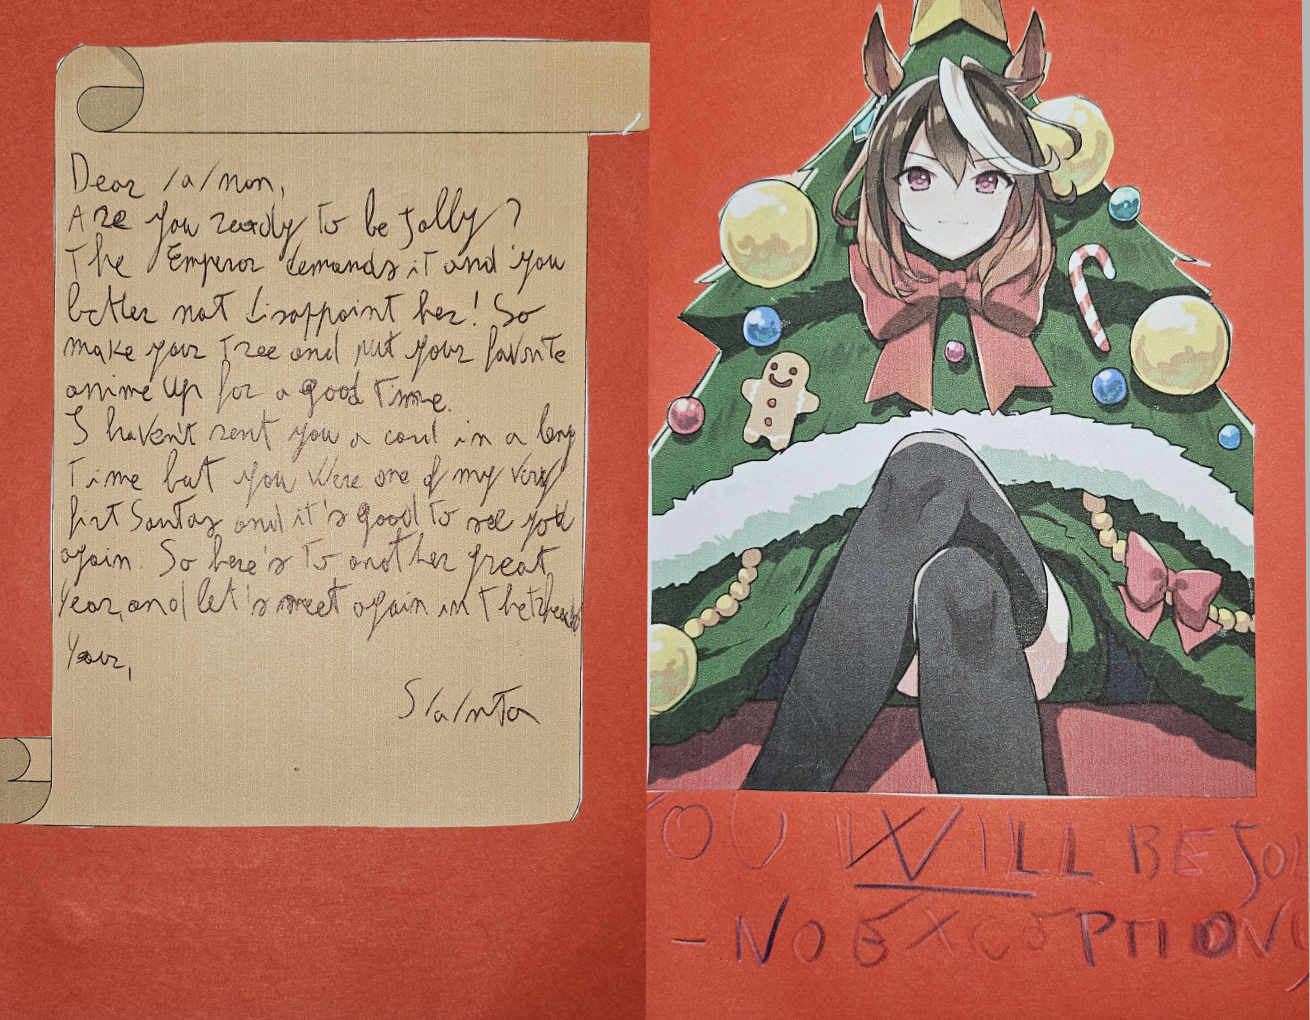 Dear /a/non,
Are you ready to be jolly?
The Emperor demands it and you
better not disappoint her! So
make your tree and put your favorite
anime up for a good time.
I haven't sent you a card in a long
time but you were one of my very
first Santas and it's good to see you
again. So here's to another great
year, and let's meet again in the thread
Your,
S/a/nta
YOU WILL BE JOL
- NO EXCEPTIONS